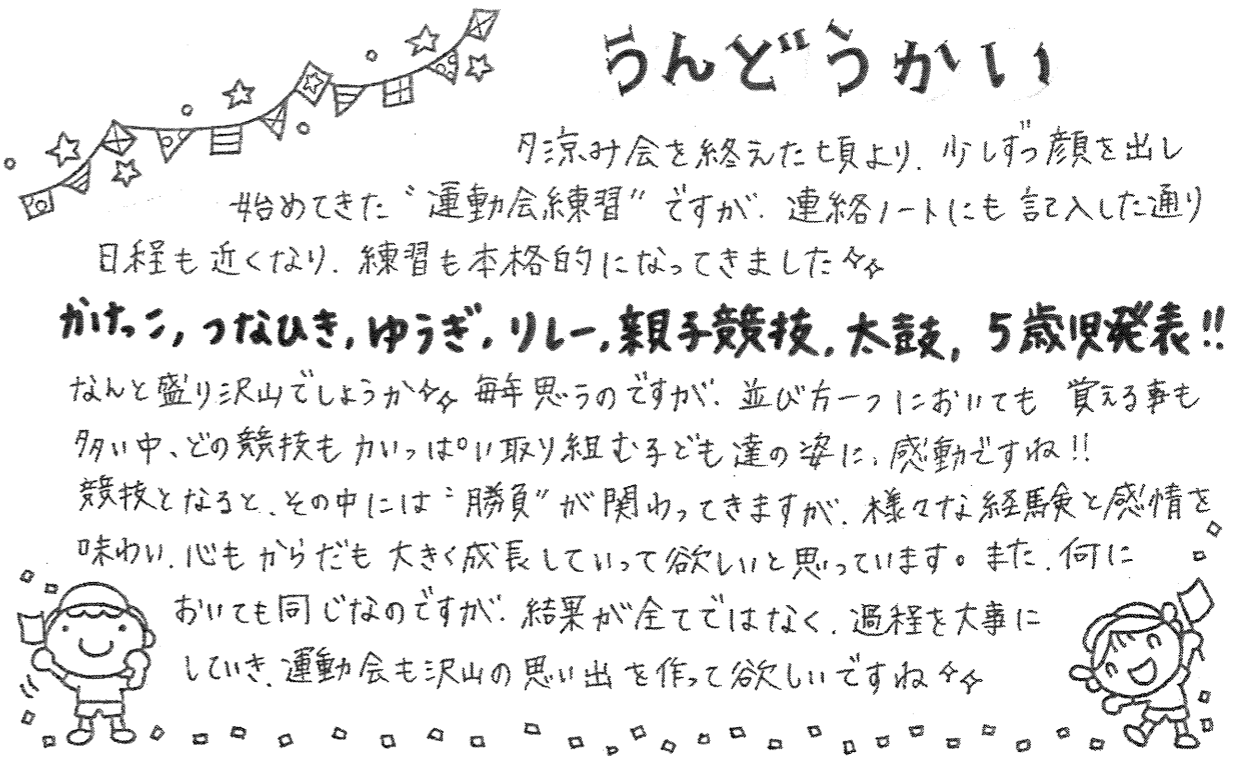 うんどうかい
夕涼み会を終えた頃より、少しずつ顔を出し
始めてきた〝運動会練習〟ですが、連絡ノートにも記入した通り
日程も近くなり、練習も本格的になってきました✧✧
かけっこ,つなひき,ゆうぎ,リレー,親子競技,太鼓,5歳児発表!!
なんと盛り沢山でしょうか✧✧ 毎年思うのですが、並び方一つにおいても 覚える事も
多い中、どの競技も力いっぱい取り組む子ども達の姿に、感動ですね!!
競技となると、その中には〝勝負〟が関わってきますが、様々な経験と感情を
味わい、心も からだも 大きく成長していって欲しいと思っています。また、何に
おいても同じなのですが、結果が全てではなく、過程を大事に
していき、運動会も沢山の思い出を作って欲しいですね✧✧